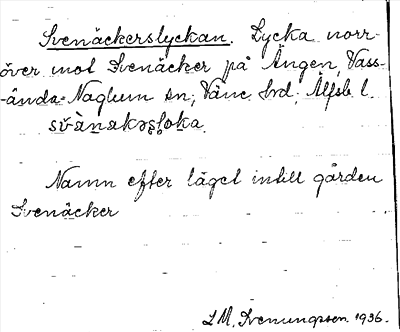 Svenäckerslyckan. Lycka norr-
över mot Svenäcker på Ängen, Vass-
ända-Naglum sn, Väne hd, Älfsb l.
Namn efter läget intill gården
Svenäcker
L M. Svenungsson 1936.